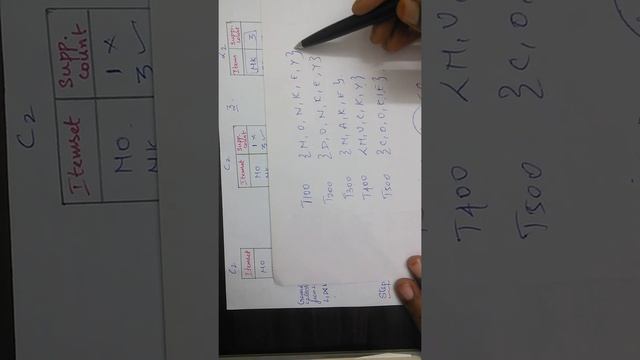 C2
Itemset Supp. count
MO 1 ×
MK 3 ✓
L2
Items Supp. count
MK 3
3
C2
Itemset Supp. count
MO 1 ×
3 ✓
C2
Itemset
MO
T100 {M, O, N, K, E, Y}
T200 {D, O, N, K, E, Y}
T300 {M, A, K, E}
T400 {M, U, C, K, Y}
T500 {C, O, O, K, E}
Step
T400 {M, U,
T500 {C, O,